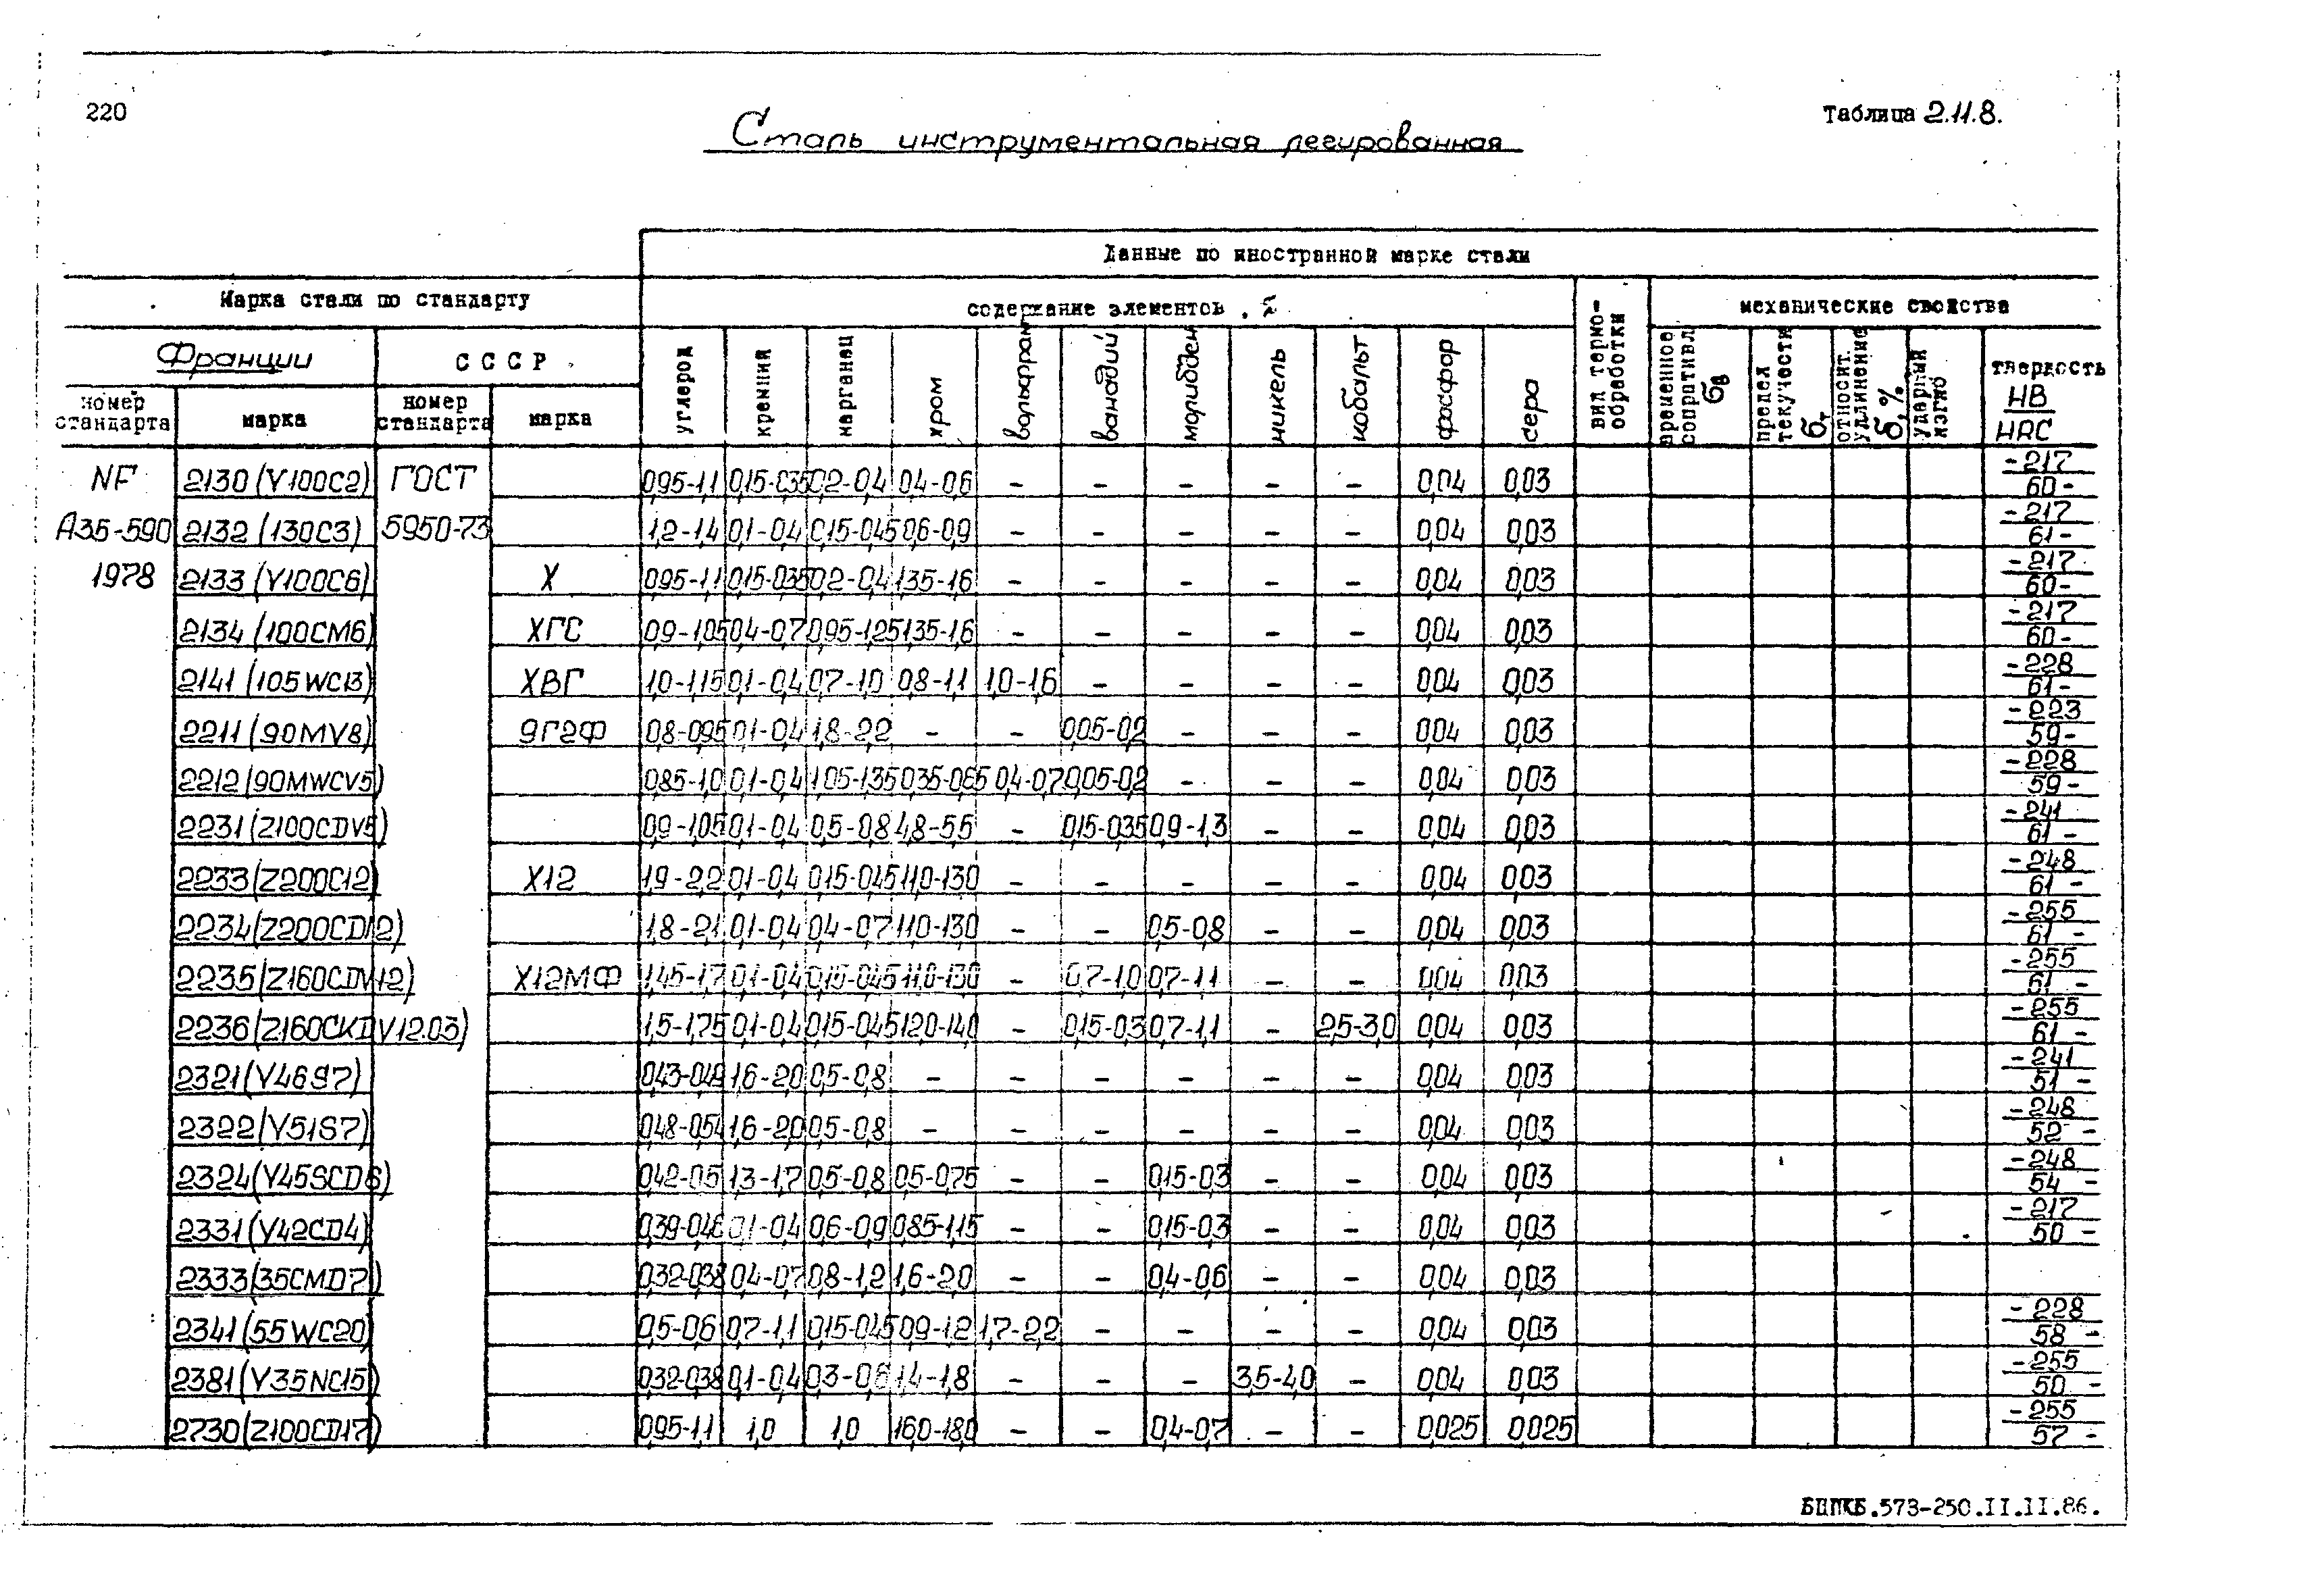 220
Таблица 2.11.8.
Сталь инструментальная легированная
Данные по иностранной марке стали
Марка стали по стандарту
содержание элементов, %
вид термо-обработки
механические свойства
Франции
СССР
номер стандарта
марка
номер стандарта
марка
углерод
кремний
марганец
хром
вольфрам
ванадий
молибден
никель
кобальт
фосфор
сера
временное сопротивл. бв
предел текучести бт
относит. удлинение б, %
ударный изгиб
твердость НВ HRC
NF 2130 (Y100C2) ГОСТ 0,95-1,1 0,15-0,35 0,2-0,4 0,4-0,6 – – – – – 0,04 0,03 -217 60-
A35-590 2132 (130C3) 5950-73 1,2-1,4 0,1-0,4 0,15-0,45 0,6-0,9 – – – – – 0,04 0,03 -217 61-
1978 2133 (Y100C6) Х 0,95-1,1 0,15-0,35 0,2-0,4 1,35-1,6 – – – – – 0,04 0,03 -217 60-
2134 (100CM6) ХГС 0,9-1,05 0,4-0,7 0,95-1,25 1,35-1,6 – – – – – 0,04 0,03 -217 60-
2141 (105WC13) ХВГ 1,0-1,15 0,1-0,4 0,7-1,0 0,8-1,1 1,0-1,6 – – – – 0,04 0,03 -228 61-
2211 (90MV8) 9Г2Ф 0,8-0,95 0,1-0,4 1,8-2,2 – – 0,05-0,2 – – – 0,04 0,03 -223 59-
2212 (90MWCV5) 0,85-1,0 0,1-0,4 1,05-1,35 0,35-0,65 0,4-0,7 0,05-0,2 – – – 0,04 0,03 -228 59-
2231 (Z100CDV5) 0,9-1,05 0,1-0,4 0,5-0,8 4,8-5,5 – 0,15-0,35 0,9-1,3 – – 0,04 0,03 -241 61-
2233 (Z200C12) Х12 1,9-2,2 0,1-0,4 0,15-0,45 11,0-13,0 – – – – – 0,04 0,03 -248 61-
2234 (Z200CD12) 1,8-2,1 0,1-0,4 0,4-0,7 11,0-13,0 – – 0,5-0,8 – – 0,04 0,03 -255 61-
2235 (Z160CDV12) Х12МФ 1,45-1,7 0,1-0,4 0,15-0,45 11,0-13,0 – 0,7-1,0 0,7-1,1 – – 0,04 0,03 -255 61-
2236 (Z160CKDV12.03) 1,5-1,75 0,1-0,4 0,15-0,45 12,0-14,0 – 0,15-0,3 0,7-1,1 – 2,5-3,0 0,04 0,03 -255 61-
2321 (Y46S7) 0,43-0,49 1,6-2,0 0,5-0,8 – – – – – – 0,04 0,03 -241 51-
2322 (Y51S7) 0,48-0,54 1,6-2,0 0,5-0,8 – – – – – – 0,04 0,03 -248 52-
2324 (Y45SCD6) 0,42-0,5 1,3-1,7 0,5-0,8 0,5-0,75 – – 0,15-0,3 – – 0,04 0,03 -248 54-
2331 (Y42CD4) 0,39-0,46 0,1-0,4 0,6-0,9 0,85-1,15 – – 0,15-0,3 – – 0,04 0,03 -217 50-
2333 (35CMD7) 0,32-0,38 0,4-0,7 0,8-1,2 1,6-2,0 – – 0,4-0,6 – – 0,04 0,03
2341 (55WC20) 0,5-0,6 0,7-1,1 0,15-0,45 0,9-1,2 1,7-2,2 – – – – 0,04 0,03 -228 58-
2381 (Y35NC15) 0,32-0,38 0,1-0,4 0,3-0,6 1,4-1,8 – – – 3,5-4,0 – 0,04 0,03 -255 50-
2730 (Z100CD17) 0,95-1,1 1,0 1,0 16,0-18,0 – – 0,4-0,7 – – 0,025 0,025 -255 57-
БЦПКБ.573-250.II.II.86.